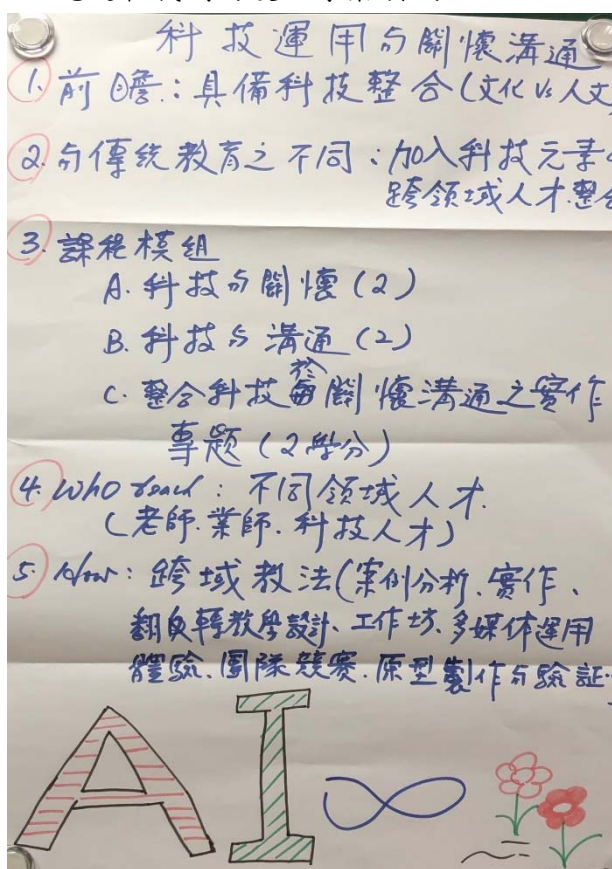 科技運用与關懷溝通
1. 前瞻:具備科技整合(文化 vs 人文
2. 与傳統教育之不同:加入科技元素
跨領域人才整合
3. 課程模組
A. 科技与關懷(2)
B. 科技与溝通(2)
C. 整合科技於關懷溝通之實作
專題(2學分)
4. Who teach : 不同領域人才.
(老師.業師.科技人才)
5. How : 跨域教法(案例分析、實作、
翻轉教學設計、工作坊、多媒体運用
體驗、團隊競賽.原型製作与驗証
AI∞